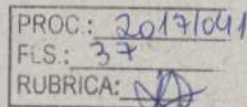 PROC.: 2017/041
FLS.: 37
RUBRICA: